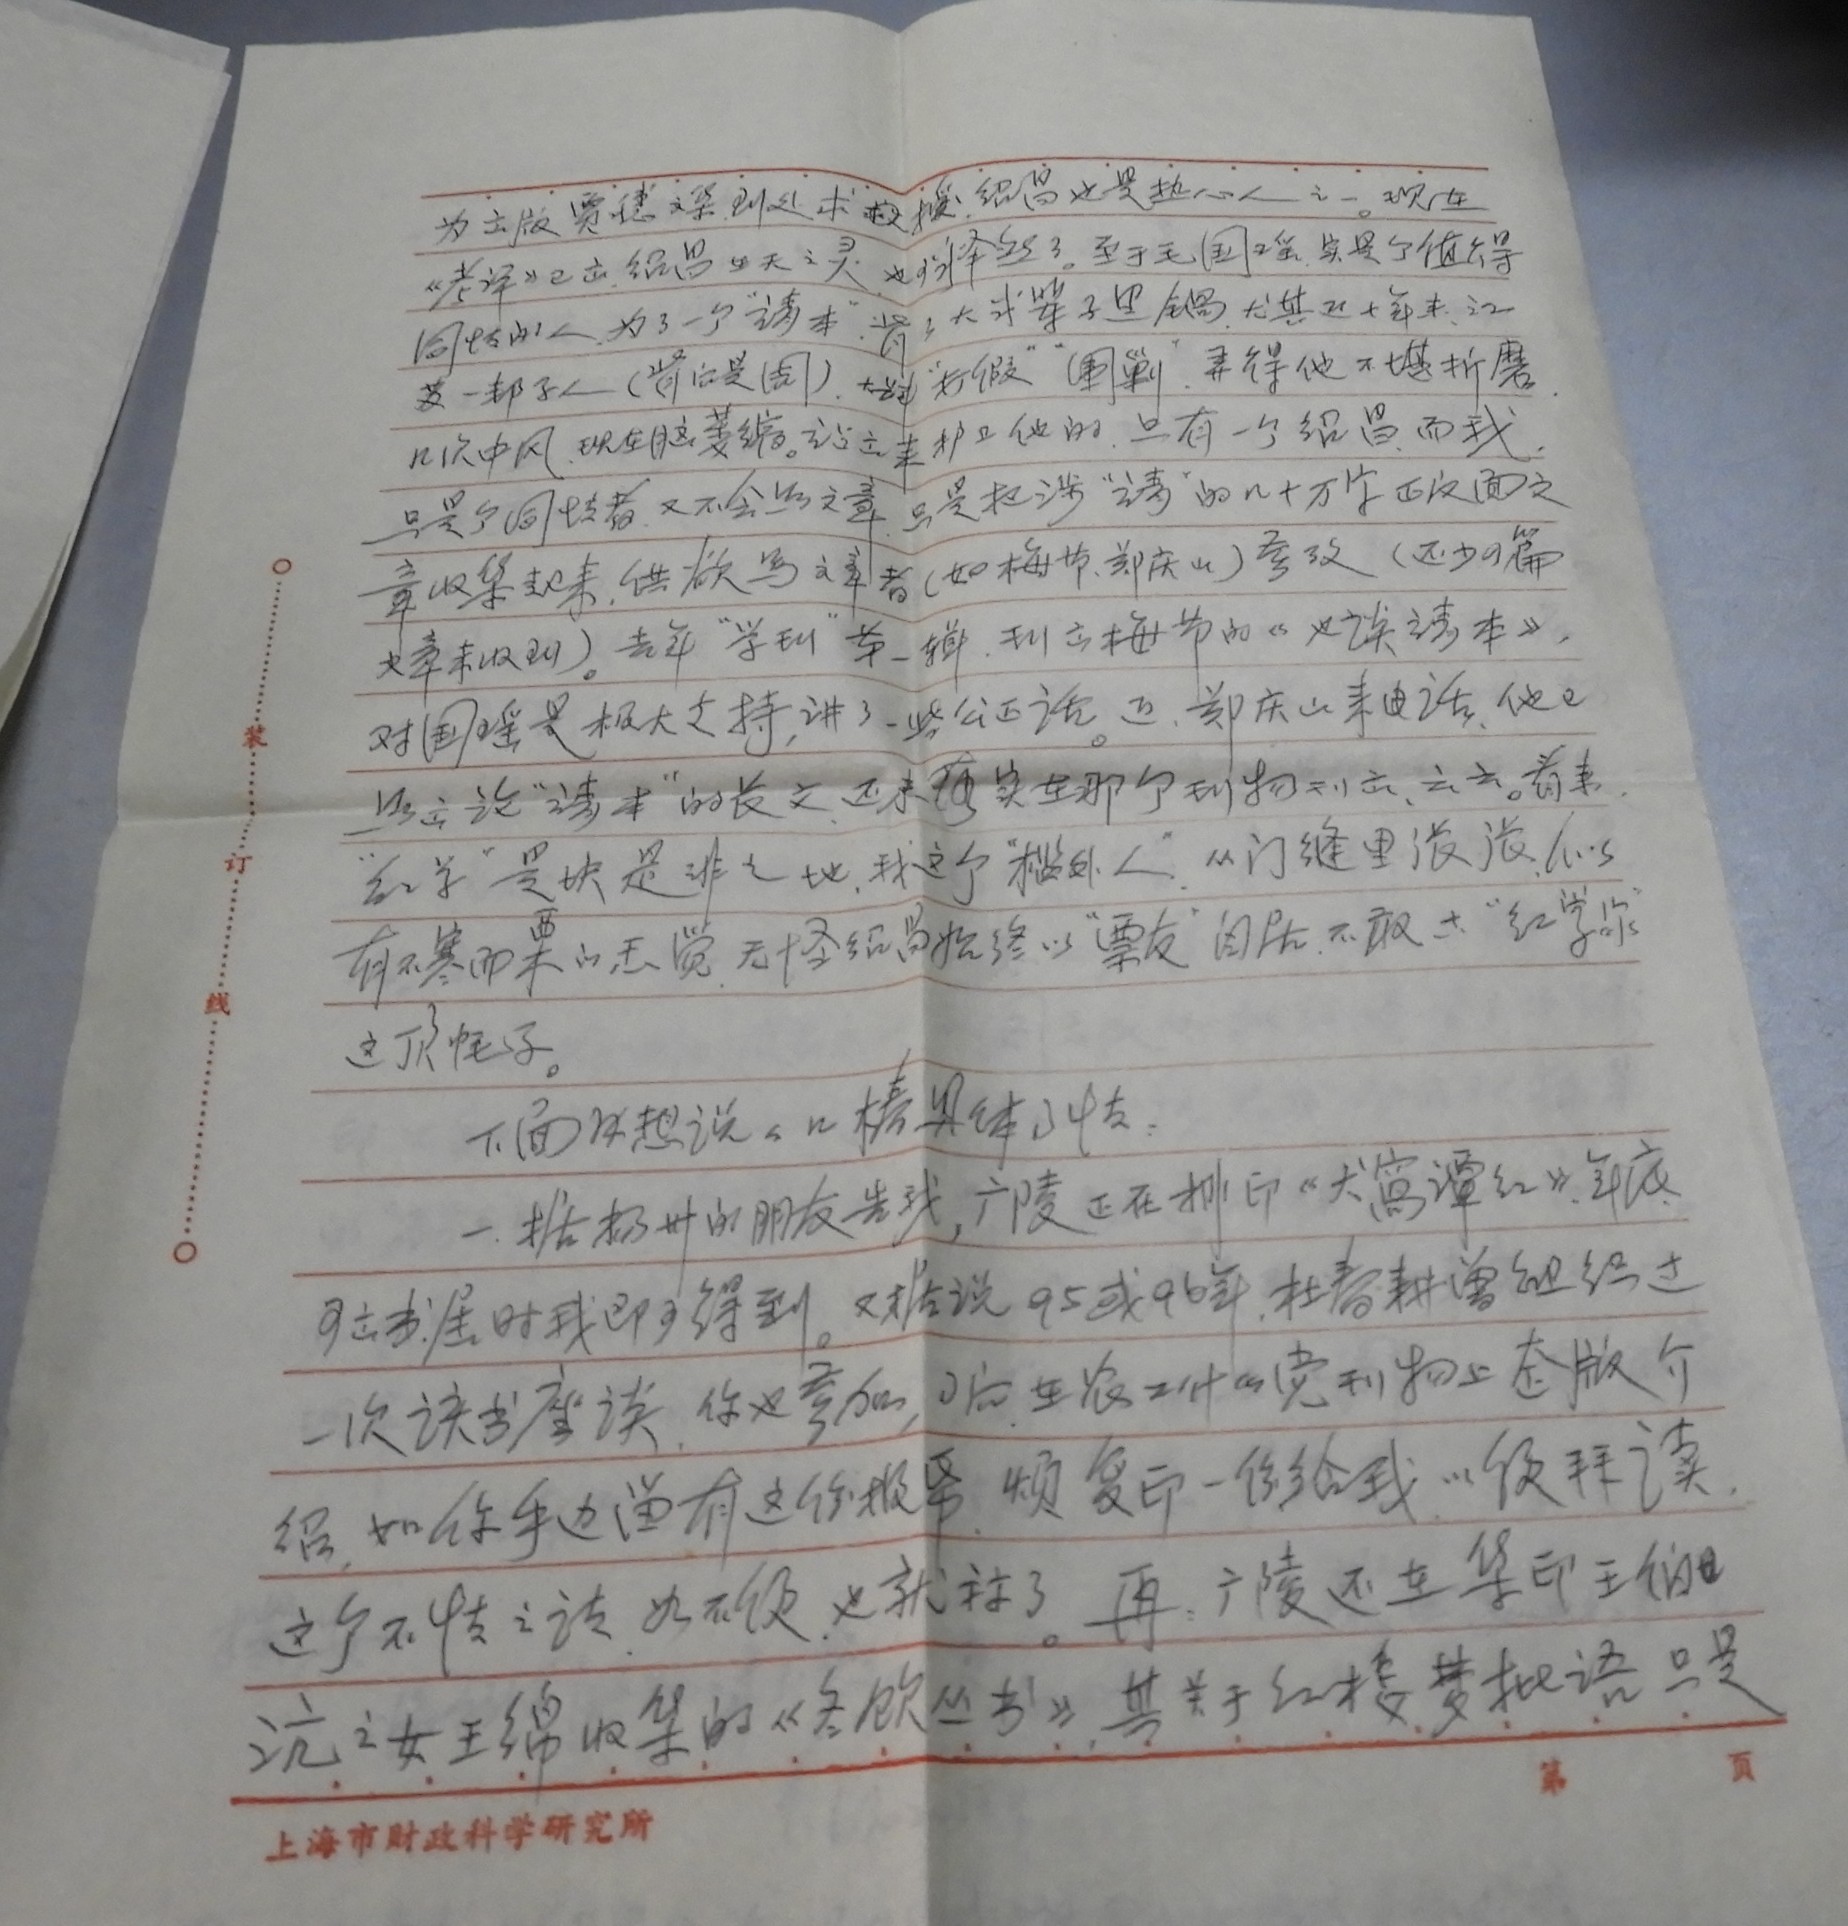 为出版贾穗文集到处求救援,绍昌也是热心人之一。现在
《考译》已出,绍昌在天之灵,也可释然了。至于毛国瑶,实是个值得
同情的人,为了一个“靖本”,背了大半辈子黑锅,尤其近十年来,江
苏一邦子人(背后是周),“打假”“围剿”,弄得他不堪折磨,
几次中风,现在脑萎缩。站出来护卫他的,只有一个绍昌,而我,
只是个同情者,又不会写文章,只是把涉“靖”的几十万字正反面文
章收集起来,供欲写文章者(如梅节、郑庆山)参考(还少可篇
文章未收到)。去年“学刊”第一辑,刊出梅节的《也谈靖本》,
对国瑶是极大支持,讲了一些公正话。近,郑庆山来电话,他已
写出论“靖本”的长文,还未落实在那个刊物刊出,云云。看来,
“红学”是块是非之地,我这个“槛外人”,从门缝里张张,
有不寒而栗的感觉,无怪绍昌始终以“票友”自居,不敢 “红学家”
这顶帽子。
下面我想说几桩具体事情:
一、据扬州的朋友告我,广陵正在排印《犬窝谭红》,年底
可出书,届时我即可得到。又据说95或96年,杜春耕曾组织过
一次读书座谈,你也参加,事后在农工 党刊物上 版介
绍,如你手边留有这份报纸,烦复印一份给我,以便拜读,
这个不情之请,如不便,也就算了。再:广陵还在集印王伯
沆之女王绵收集的《冬饮丛书》,其关于红楼梦批语只是
装
订
线
第 页
上海市财政科学研究所